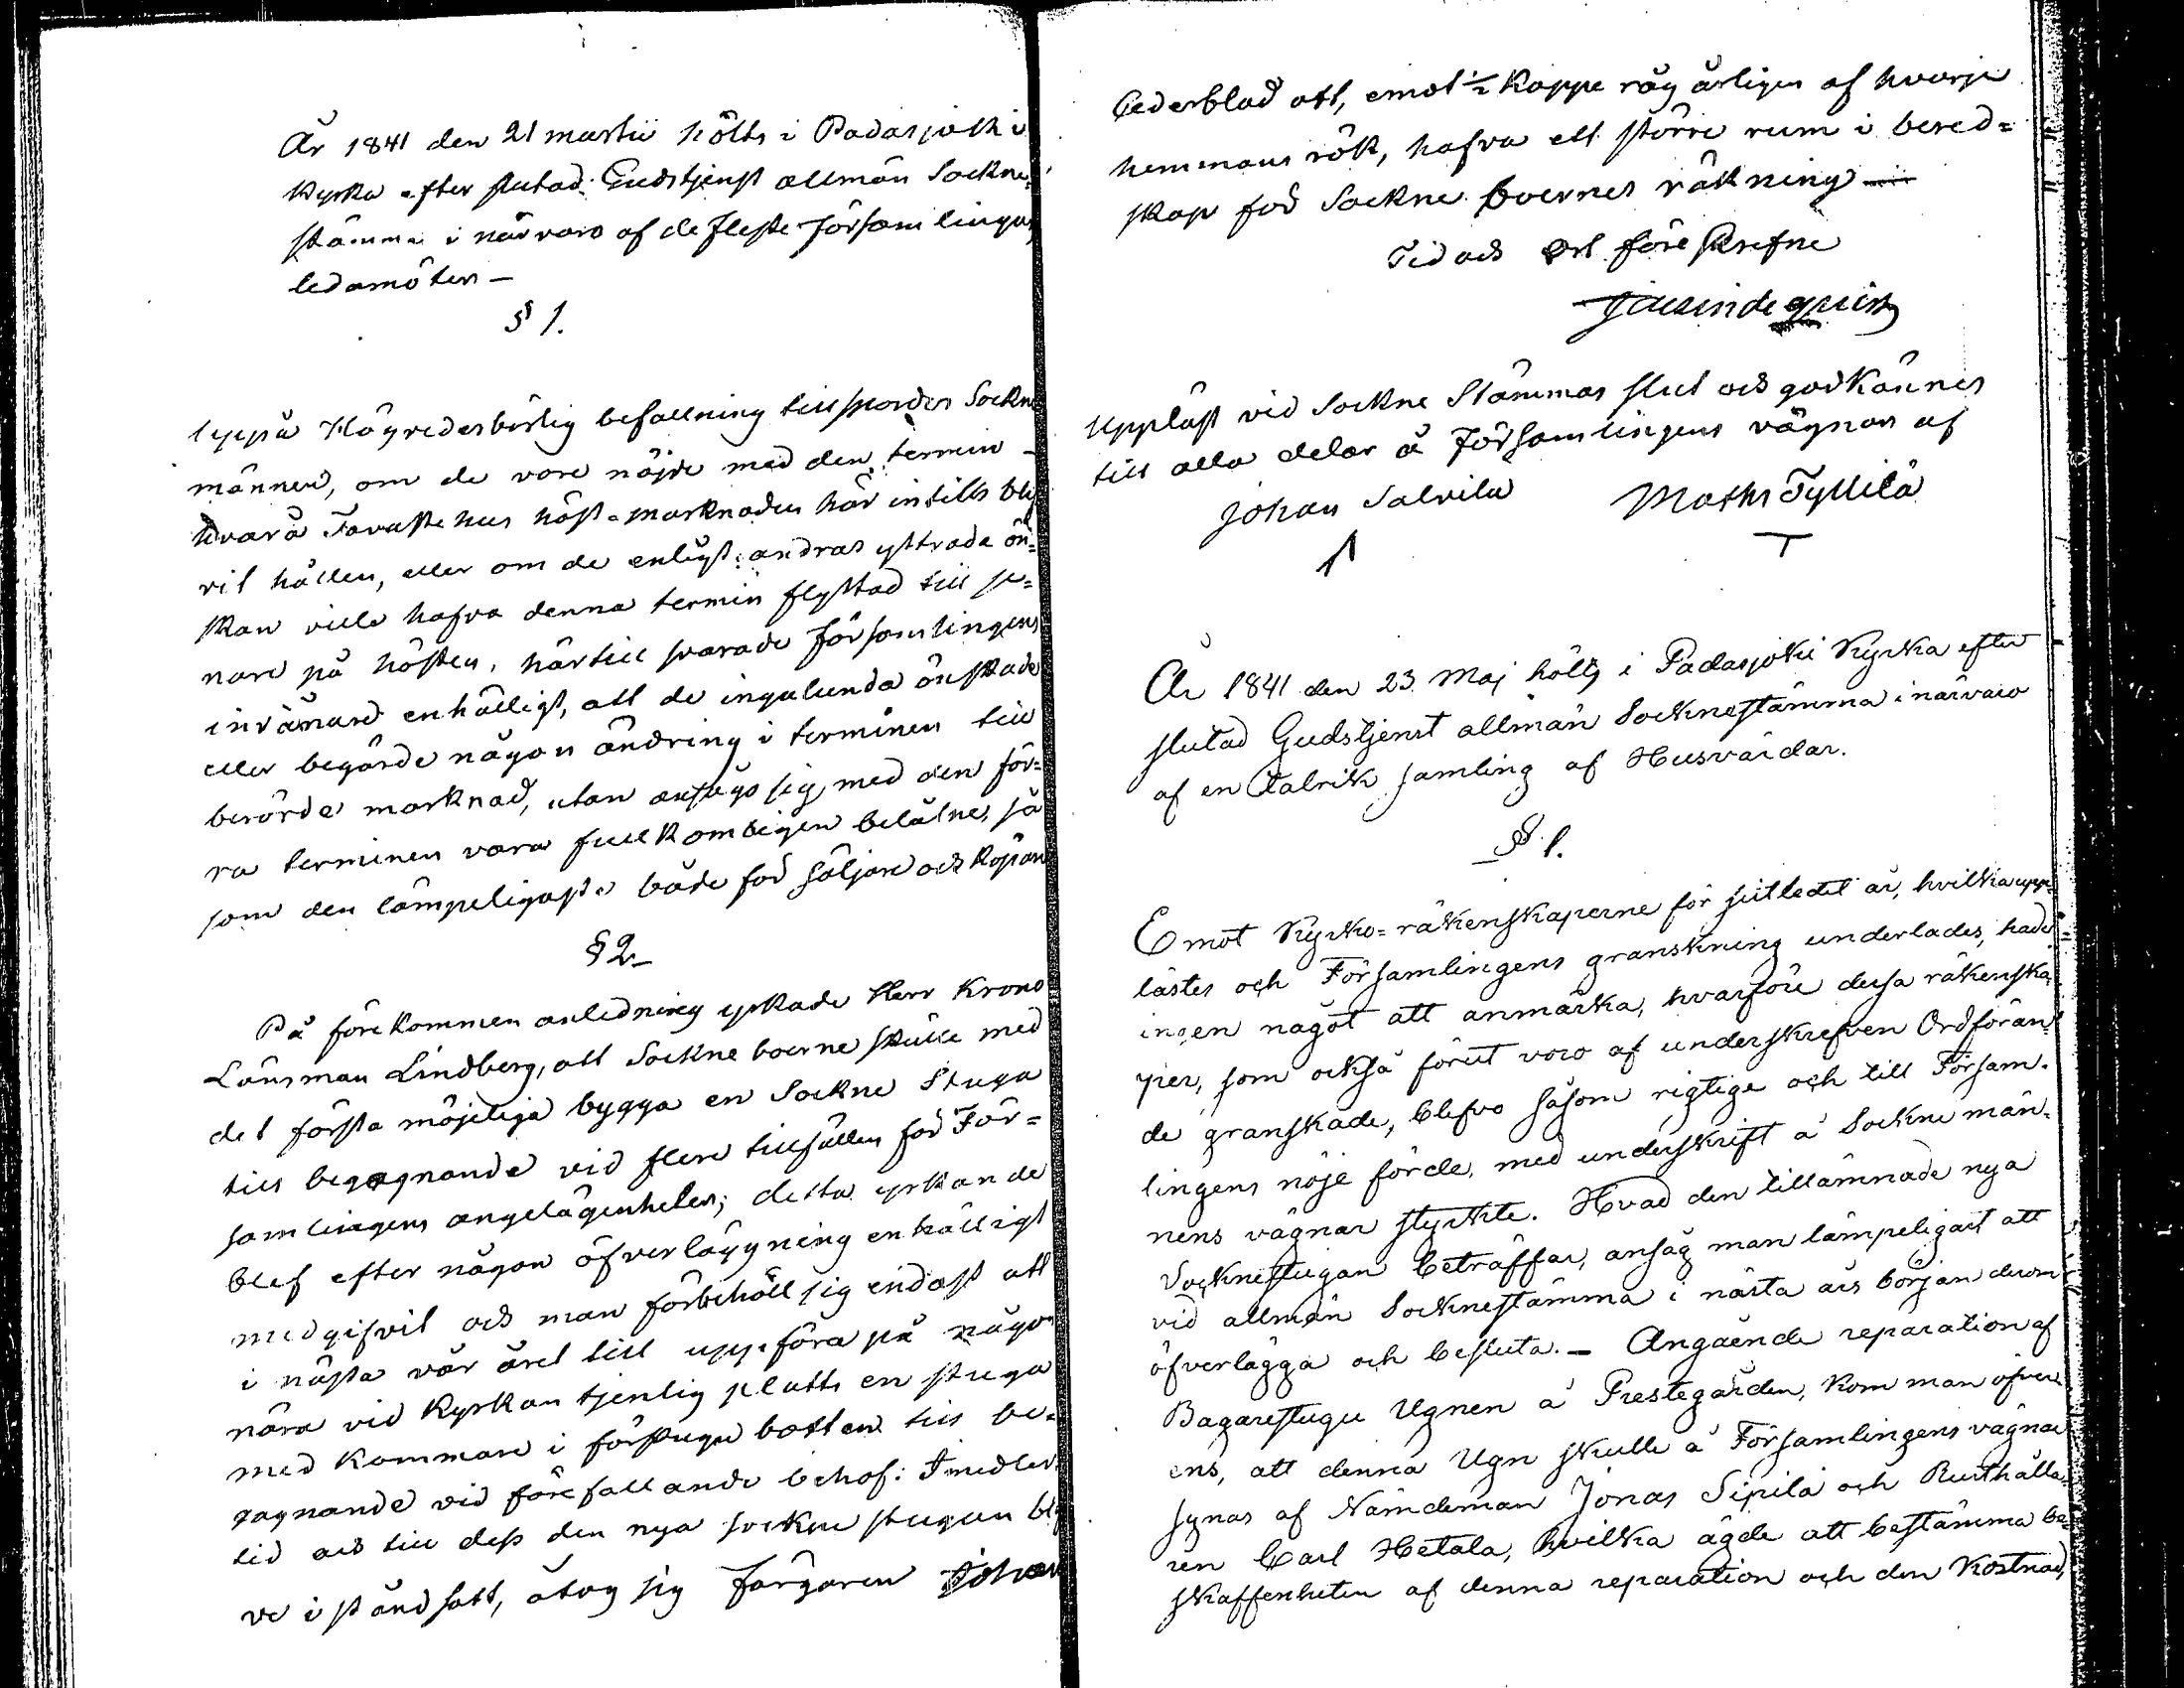 År 1841 den 21 martii hölts i Padasjoki
Kyrka efter slutad Gudstjenst allmän Sockne
stämma i närvaro af de fleste Församlingens
ledamöter –
§ 1.
Uppå Högvederbörlig befallning tillspordes Sockne
männen, om de vore nöjde med den termin
hvarå Tavastehus höst-marknaden här intills blif
vit hållen, eller om de enligt andras yttrade ön=
skan ville hafva denna termin flyttad till se=
nare på hösten, härtill svarade församlingens
invånare enhälligt, att de ingalunda önskade
eller begärde någon ändring i terminen till
berörde marknad, utan ansågo sig med den för=
ra terminen vara fullkomligen belåtne, så
som den lämpeligaste både för säljare och köpare
§ 2
På förekommen anledning yrkade Herr Krono
Länsman Lindberg, att Sockneboerne skulle med
det första möjeliga bygga en Sockne Stuga
till begagnande vid flere tillfällen för För=
samlingens angelägenheter; detta yrkande
blef efter någon öfverläggning enhälligt
medgifvit och man förbehöll sig endast att
i nästa vår året till uppföra på någon
nära vid Kyrkan tjenlig platts en stuga
med Kammare i förstugu botten till be=
gagnande vid förefallande behof. Imedler
tid och till dess den nya sockne stugan blif
ve i ståndsatt, åtog sig färgaren Johan
Cederblad att, emot ½ Kappe råg årligen af hvarje
hemmans rök, hafva ett större rum i bered=
skap för Sockne boernes räkning –
Tid och Ort före skrefne
Uppläst vid Sockne Stämmas slut och godkännes
till alla delar å Församlingens vägnar af
Johan Salvila Maths Tyllilä
År 1841 den 23 Maj hölts i Padasjoki Kyrka efter
slutad Gudstjenst allmän Socknestämma i närvaro
af en talrik samling af Husvärdar.
§ 1.
Emot Kyrko=räkenskaperne för sistledit år, hvilka upp=
lästes och Församlingens granskning underlades, hade
ingen något att anmärka, hvarföre dessa räkenska
per, som också förut voro af underskrefven Ordföran=
de granskade, blefvo såsom rigtige och till Försam=
lingens nöje förde, med underskrift å Sockne män=
nens vägnar styrkte. Hvad den tillämnade nya
Socknestugan beträffar, ansåg man lämpeligast att
vid allmän Socknestämma i nästa års början derom
öfverlägga och besluta. – Angående reparation af
Bagarestugu Ugnen å Prestegården, kom man öfver
ens, att denna Ugn skulle å Församlingens vägnar
synas af Nämdeman Jonas Sipilä och Rusthålla=
ren Carl Hetala, hvilka ägde att bestämma be=
skaffenheten af denna reparation och den Kostnad,